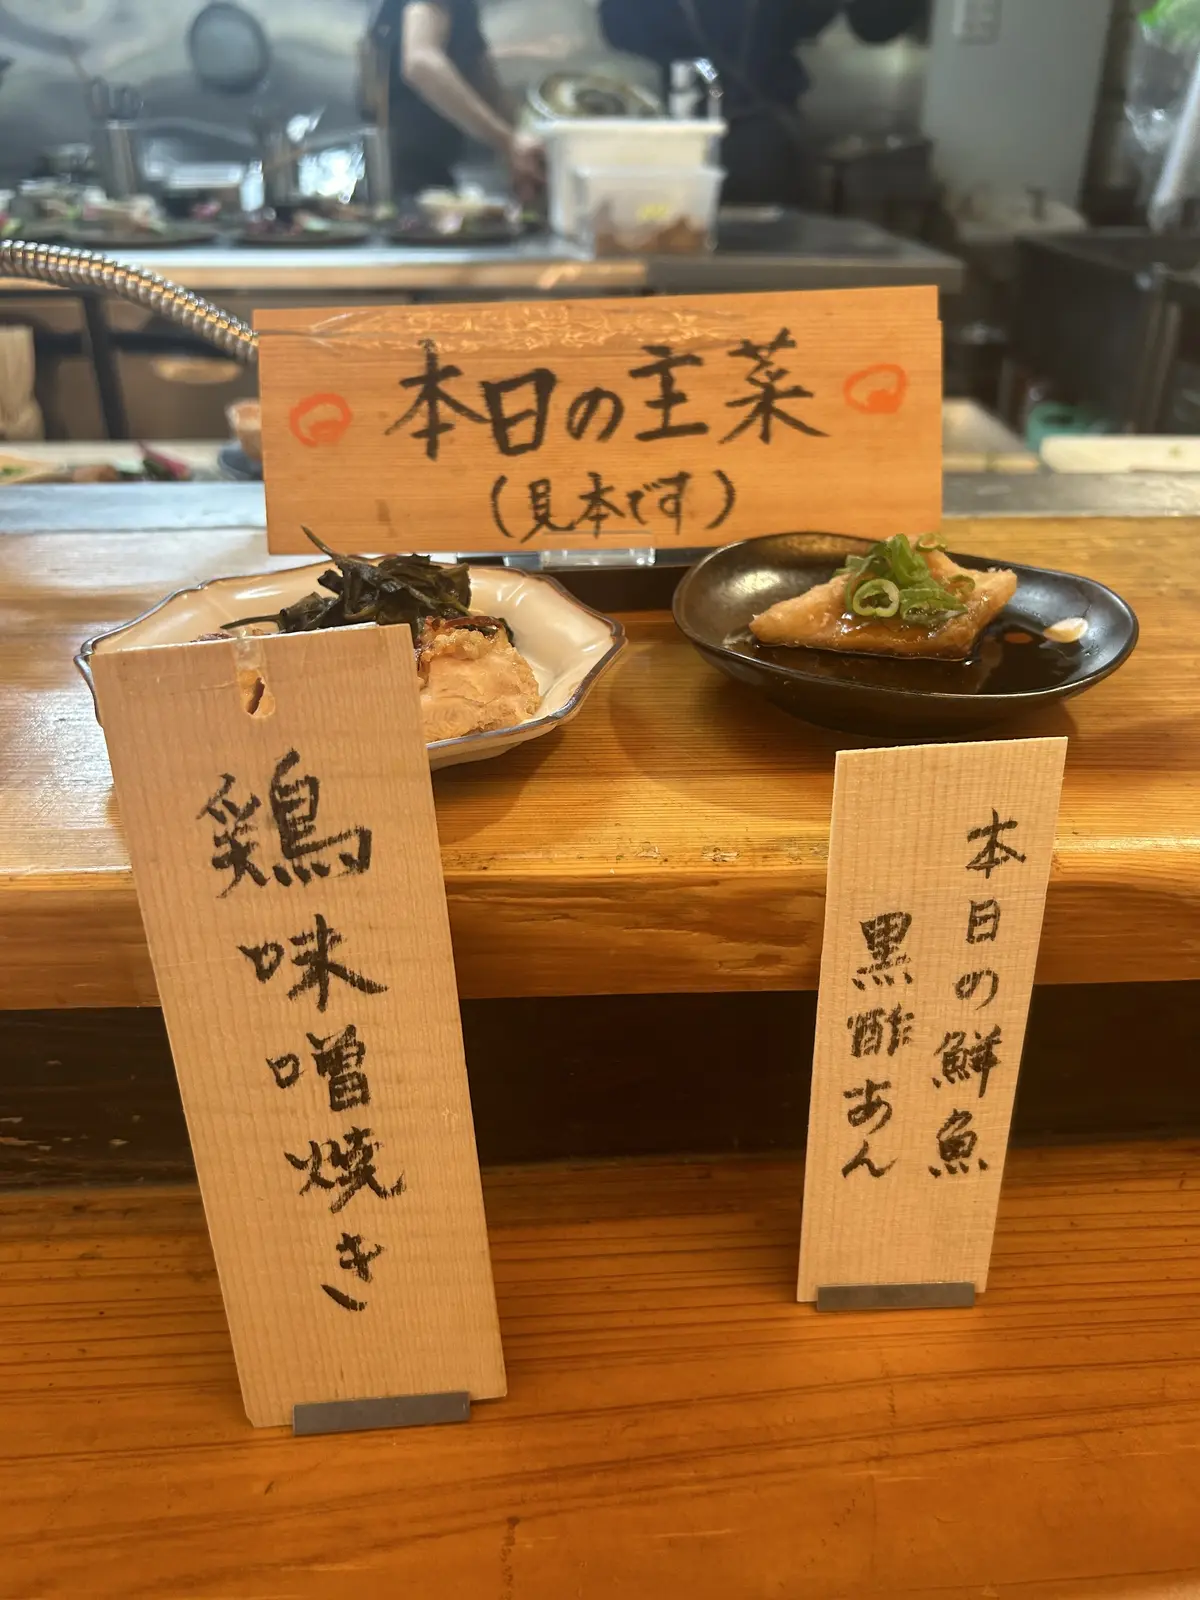 本日の主菜
(見本です)
鶏味噌焼き
本日の鮮魚
黒酢あん